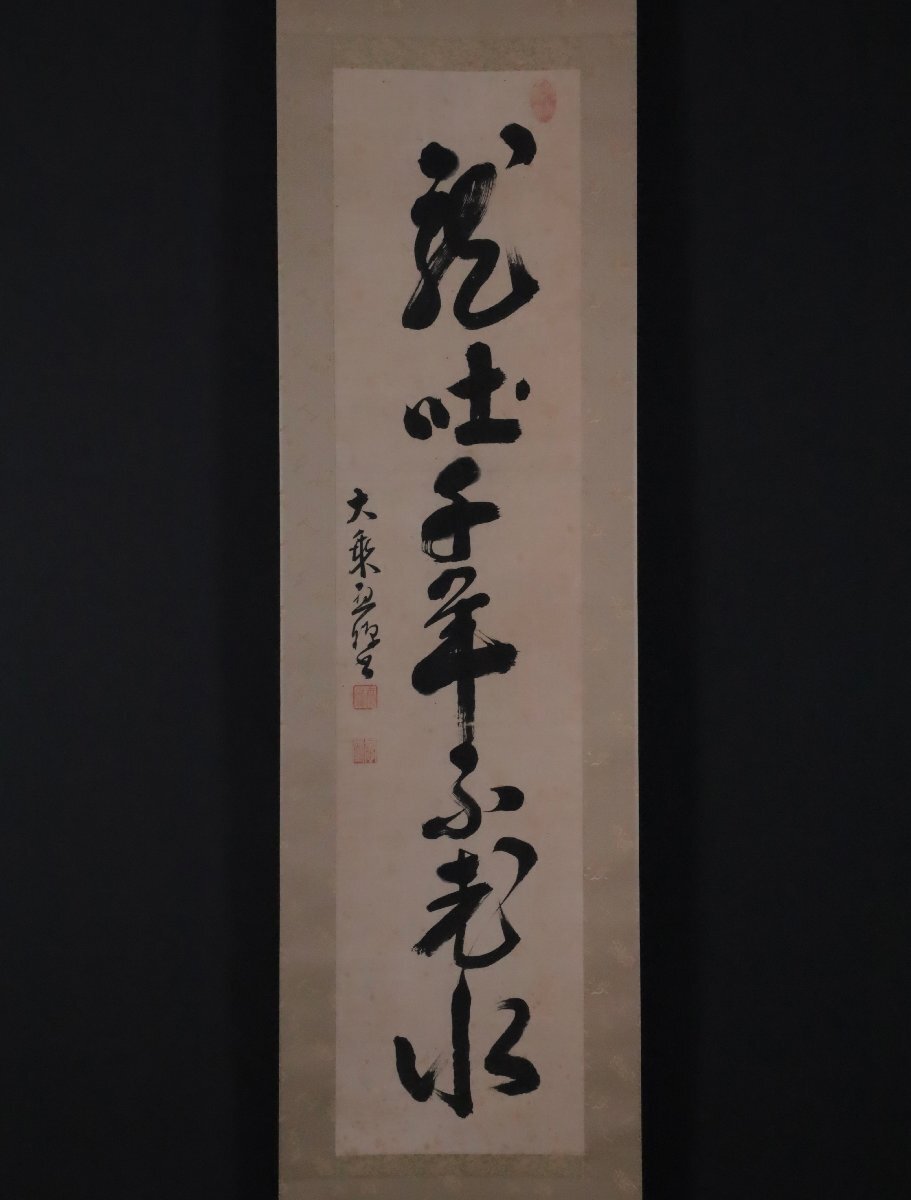 龍吐千年不老水
大乘